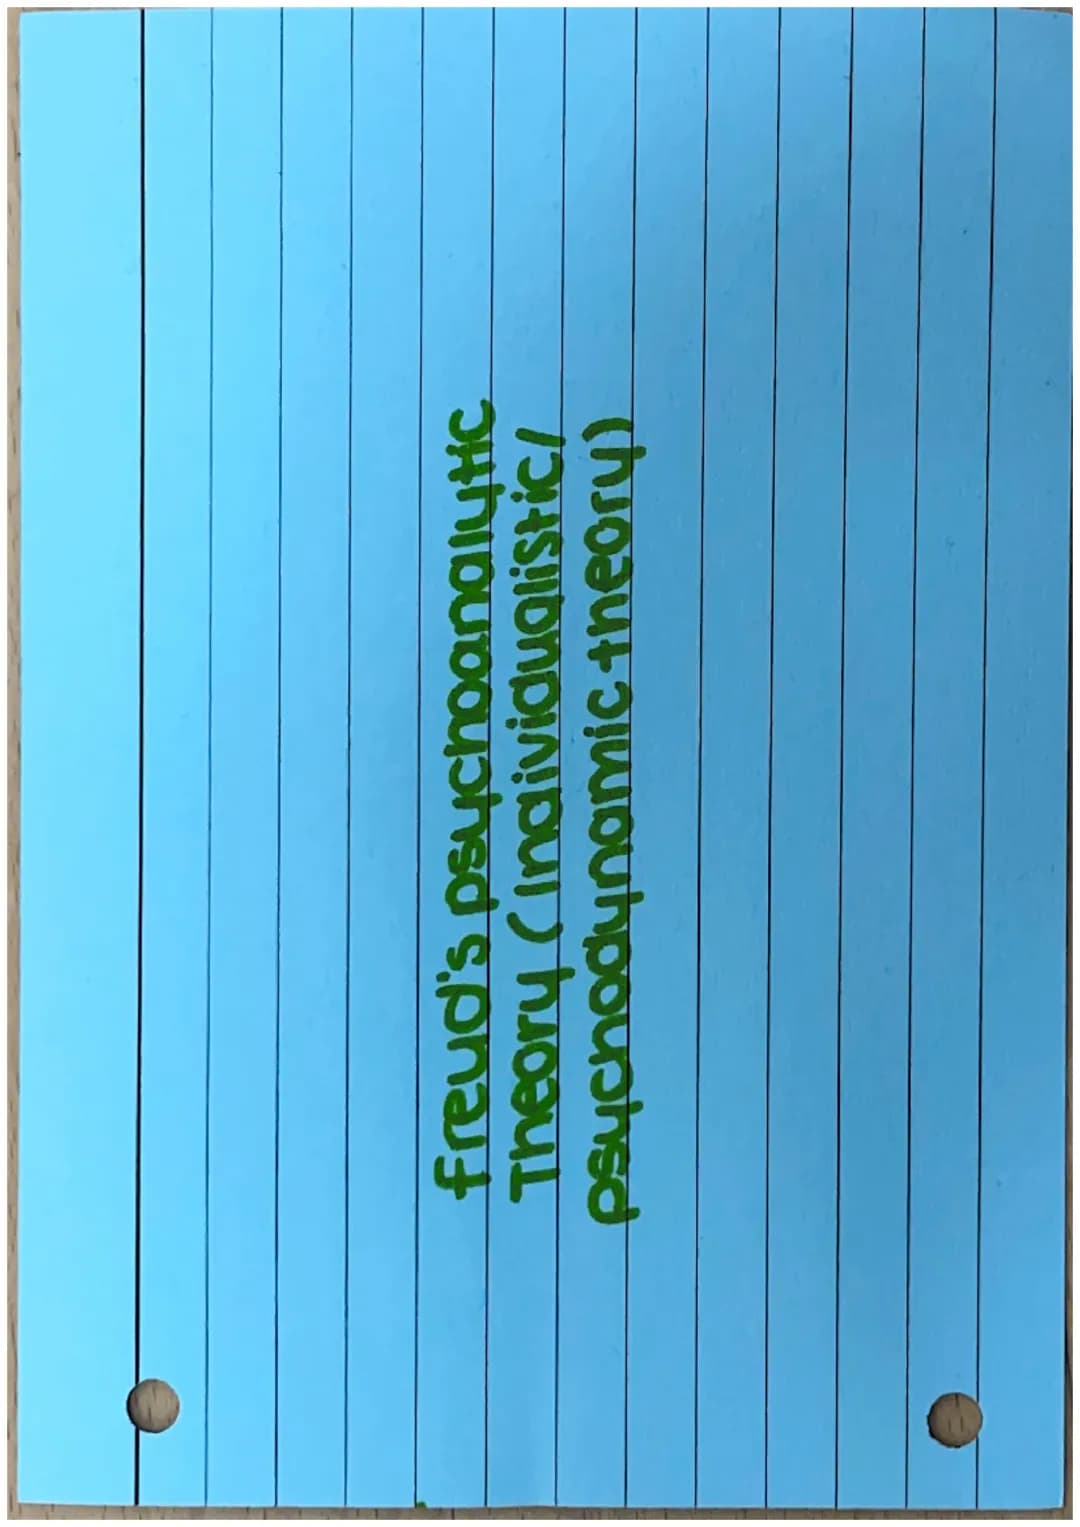 freud's psychoanalytic
Theory (Individualistic/
psychodynamic theory)